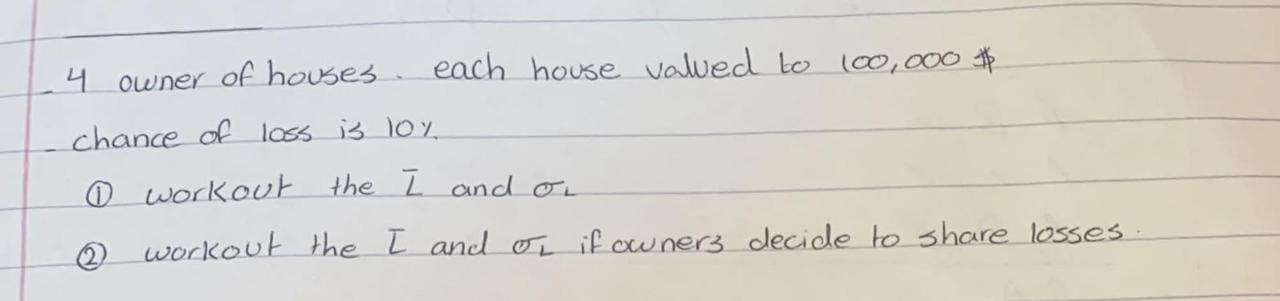 - 4 owner of houses. each house valued to 100,000 $
- chance of loss is 10%.
① workout the L̄ and σL
② workout the L̄ and σL if owners decide to share losses.